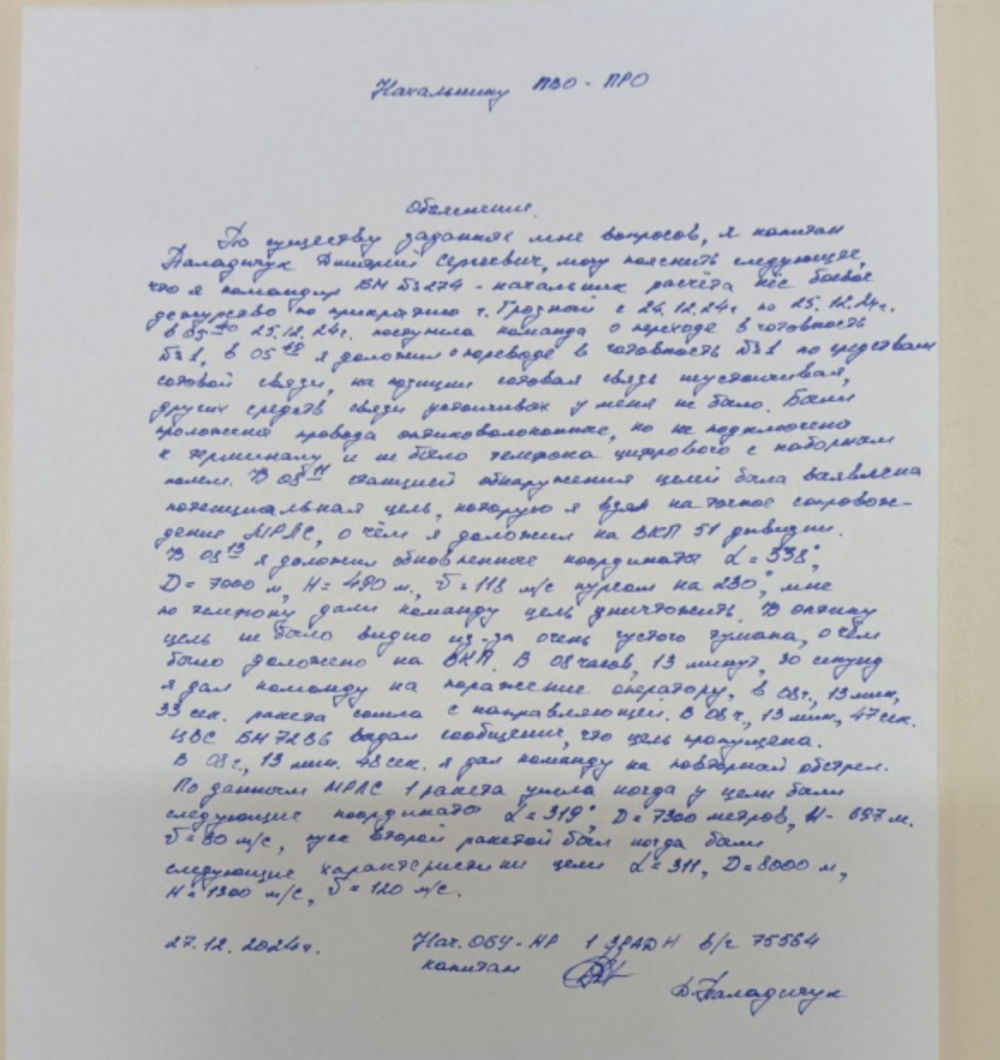 Начальнику ПВО - ПРО
Объяснение.
По существу заданных мне вопросов, я капитан
Паладичук Дмитрий Сергеевич, могу пояснить следующее,
что я командир БМ - начальник расчёта нёс боевое
дежурство по прикрытию г. Грозный с 24.12.24г. по 25.12.24г.
в 05 40 25.12.24г. поступила команда о переходе в готовность
№1, в 05 я доложил о переводе в готовность №1 по средствам
сотовой связи, на позиции сотовая связь неустойчивая,
других средств связи устойчивых у меня не было. Были
проложены провода оптиковолоконные, но не подключено
к терминалу и не было телефона цифрового с наборным
полем. В 08 11 станцией обнаружения целей была выявлена
потенциальная цель, которую я взял на точное сопровож-
дение МРЛС, о чём я доложил на ВКП 51 дивизии.
В 08 13 я доложил обновленные координаты α = 338°,
D = 7000 м, H = 490 м, v = 118 м/с курсом на 230°, мне
по телефону дали команду цель уничтожить. В оптику
цель не было видно из-за очень густого тумана, о чём
было доложено на ВКП. В 08 часов, 13 минут, 30 секунд
я дал команду на поражение оператору, в 08ч., 13 мин,
33 сек. ракета сошла с направляющей. В 08 ч., 13 мин, 47 сек.
ЦВС БМ 72В6 выдал сообщение, что цель пропущена.
В 08 ч., 13 мин. 48 сек. я дал команду на повторный обстрел.
По данным МРЛС 1 ракета ушла когда у цели были
следующие координаты α = 319°, D = 7300 метров, H - 697 м.
v = 80 м/с, пуск второй ракетой был когда были
следующие характеристики цели α = 311, D = 8000 м,
H = 1300 м/с, v = 120 м/с.
27.12.2024г. Нач. ОБУ - НР 1 ЗРАДН в/ч 75564
капитан
Д. Паладичук